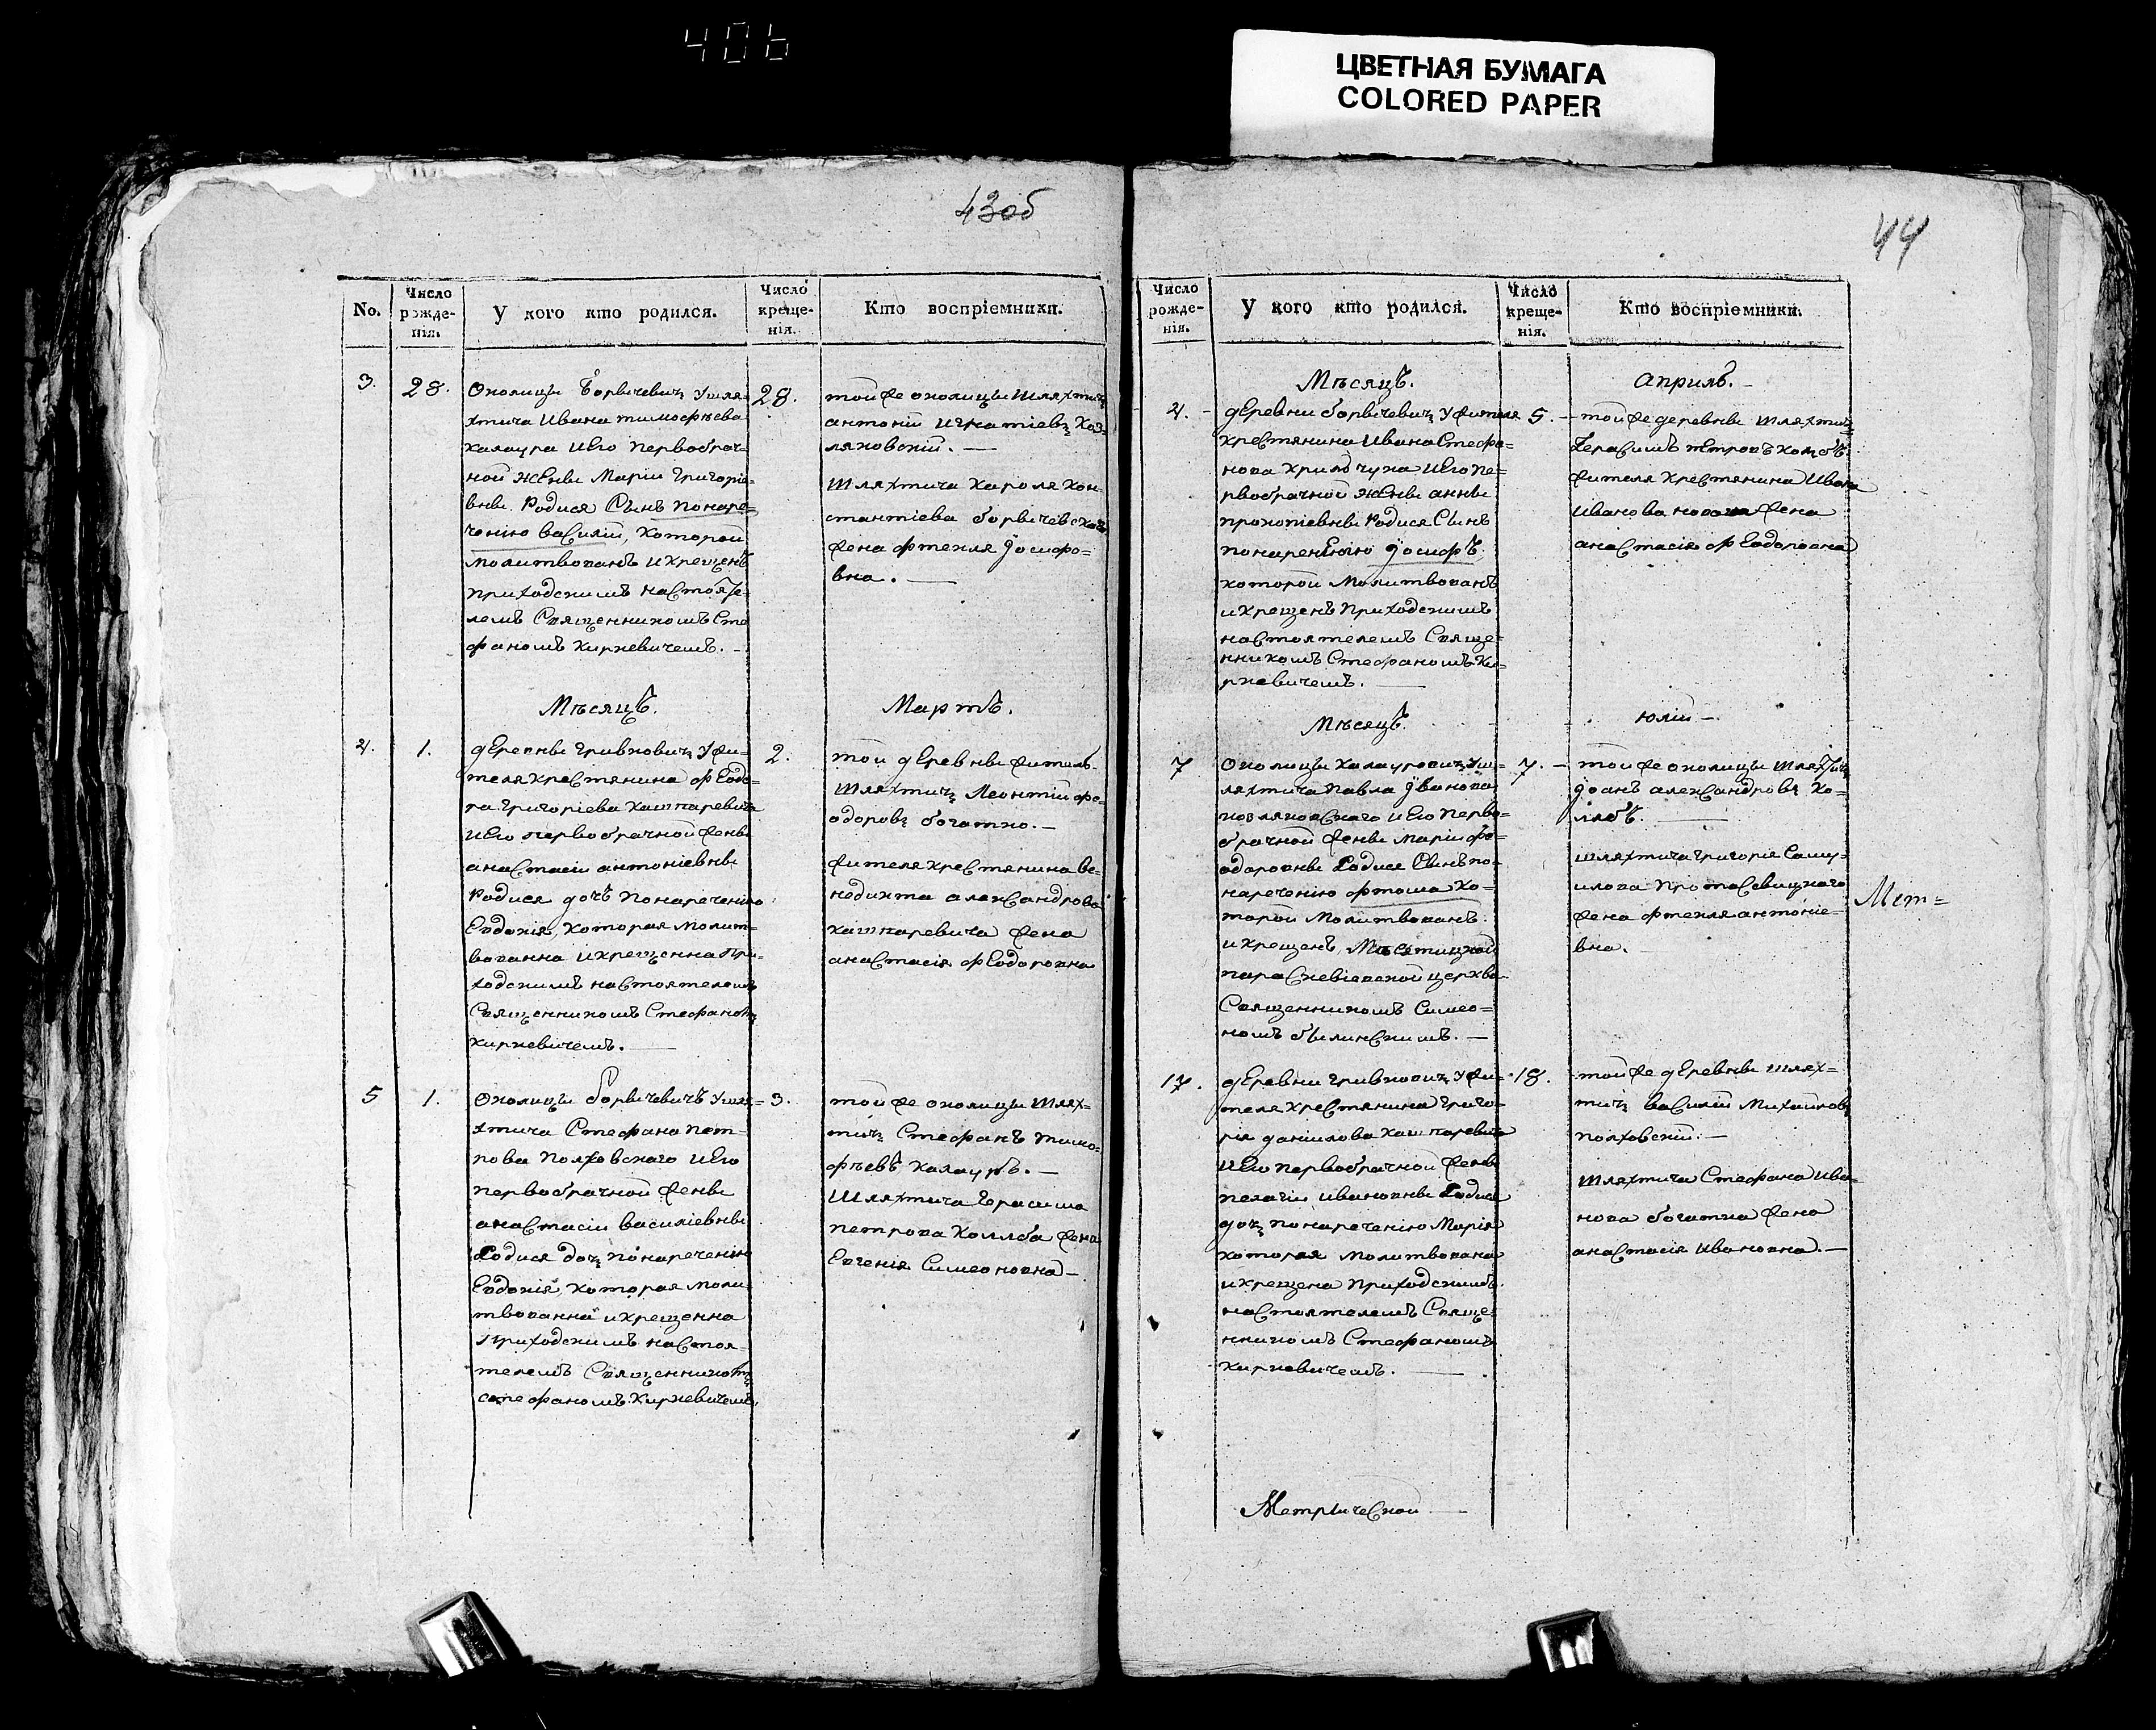 406
ЦВЕТНАЯ БУМАГА
COLORED PAPER
43об
44
No.
Число рожденія.
У кого кто родился.
Число крещенія.
Кто воспріемники.
3.
28.
Околицы Борвичевичъ у шля=
хтича Ивана тимофѣева
калаура и его первобрач=
ной женѣ Маріи Григоріе=
внѣ. Родися Сынъ По наре=
ченію василій, которой
Молитвованъ и крещенъ
приходскимъ настояте=
лемъ Священникомъ Сте
фаномъ Киркевичемъ. -
28.
той же околицы шляхтичъ
антоній игнатіевъ Коз=
ляковскій. —
Шляхтича Кароля Кон=
стантіева борвичевскаго
жена фтекля Іосифо=
вна. —
Мѣсяцъ.
Мартъ.
4.
1.
деревнѣ Гривковичъ у жи=
теля крестянина Феодо=
ра Григоріева Кашкаревича
и его первобрачной женѣ
анастасіи антоніевнѣ
Родися дочъ По нареченію
Евдокія, которая молит=
вованна и крещенна При=
ходскимъ настоятелемъ
Священникомъ Стефаномъ
Киркевичемъ. —
2.
той деревнѣ житель
шляхтичъ Леонтій фе=
одоровъ богатко. —
жителя крестянина Ве=
недикта александрова
кашкаревича жена
анастасія Феодоровна
5
1.
Околицы борвичевичъ у шля=
хтича Стефана Пет=
рова Полховскаго и его
первобрачной женѣ
анастасіи василіевнѣ
Родися дочъ По нареченію
Евдокія, которая моли=
твованна и крещенна
Приходскимъ настоя=
телемъ Священникомъ
стефаномъ Киркевичемъ.
3.
той же околицы шлях=
тичъ Стефанъ тимо=
фѣевъ Калауръ. —
Шляхтича Герасима
петрова Колмба жена
Евгенія Симеоновна —
Число рожденія.
У кого кто родился.
Число крещенія.
Кто воспріемники.
Мѣсяцъ.
априль. —
4. -
деревни борвичевичъ у жителя
крестянина Ивана Стефа=
нова и его пе=
рвобрачной женѣ аннѣ
прокопіевнѣ Родися Сынъ
по нареченію Іосифъ.
которой Молитвованъ
и крещенъ Приходскимъ
настоятелемъ Свяще=
нникомъ Стефаномъ Ки=
ркевичемъ. —
5. -
той же деревнѣ шляхтичъ
Герасимъ Петровъ
жителя крестянина Ивана
Иванова жена
анастасія Феодоровна
Мѣсяцъ.
юлій —.
7
Околицы Калауровичъ у ш=
ляхтича Павла Іванова
козляковскаго и его Перво=
брачной женѣ Маріи фе=
одоровнѣ Родися Сынъ по
наречению фтома ко=
торой Молитвованъ
и крещенъ,
параскевіевской церкви
Священникомъ Симео=
номъ былинскимъ. —
7. -
той же околицы шляхтичъ
Іоанъ александровъ
шляхтича Григорія Саму=
илова Протасевицкаго
жена фтекля антоніе=
вна.
Мет=
17.
деревни Гривковичъ у жи=
теля крестянина Григо=
рія даніилова Кашкаревича
и его первобрачной женѣ
пелагіи Ивановнѣ Родися
дочъ по нареченію Марія
которая молитвована
и крещена Приходскимъ
настоятелемъ Свяще=
нникомъ Стефаномъ
Киркевичемъ. —
18.
той же деревнѣ шлях=
тичъ василій Михайловъ
полховскій. —
шляхтича Стефана Ива=
нова богатка жена
анастасія Ивановна. —
Метрической —